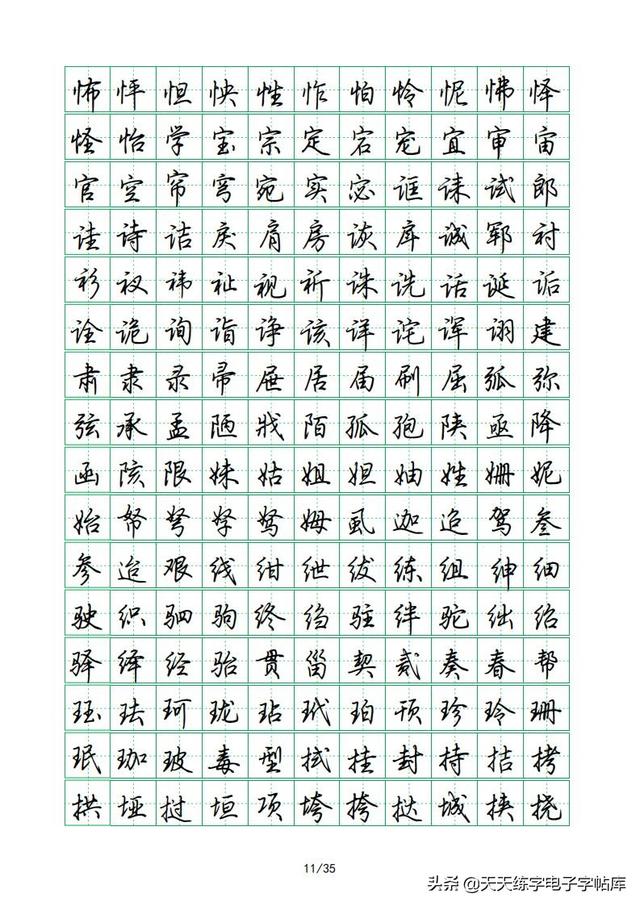 怖 怦 怛 怏 性 怍 怕 怜 怩 怫 怿
怪 怡 学 宝 宗 定 宕 宠 宜 审 宙
官 空 帘 穹 宛 实 宓 诓 诔 试 郎
诖 诗 诘 戾 肩 房 诙 戽 诚 郓 衬
衫 衩 祎 祉 视 祈 诛 诜 话 诞 诟
诠 诡 询 诣 诤 该 详 诧 诨 诩 建
肃 隶 录 帚 屉 居 届 刷 屈 弧 弥
弦 承 孟 陋 戕 陌 孤 孢 陕 亟 降
函 陔 限 妹 姑 姐 妲 妯 姓 姗 妮
始 帑 弩 孥 驽 姆 虱 迦 迢 驾 叁
参 迨 艰 线 绀 绁 绂 练 组 绅 细
驶 织 驷 驹 终 绉 驻 绊 驼 绌 绍
驿 绎 经 骀 贯 甾 契 贰 奏 春 帮
珏 珐 珂 珑 玷 玳 珀 顸 珍 玲 珊
珉 珈 玻 毒 型 拭 挂 封 持 拮 拷
拱 垭 挝 垣 项 垮 挎 挞 城 挟 挠
11/35
头条 @天天练字电子字帖库